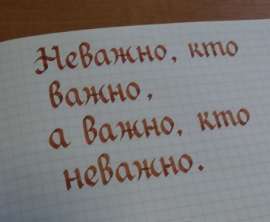 Неважно, кто
важно,
а важно, кто
неважно.